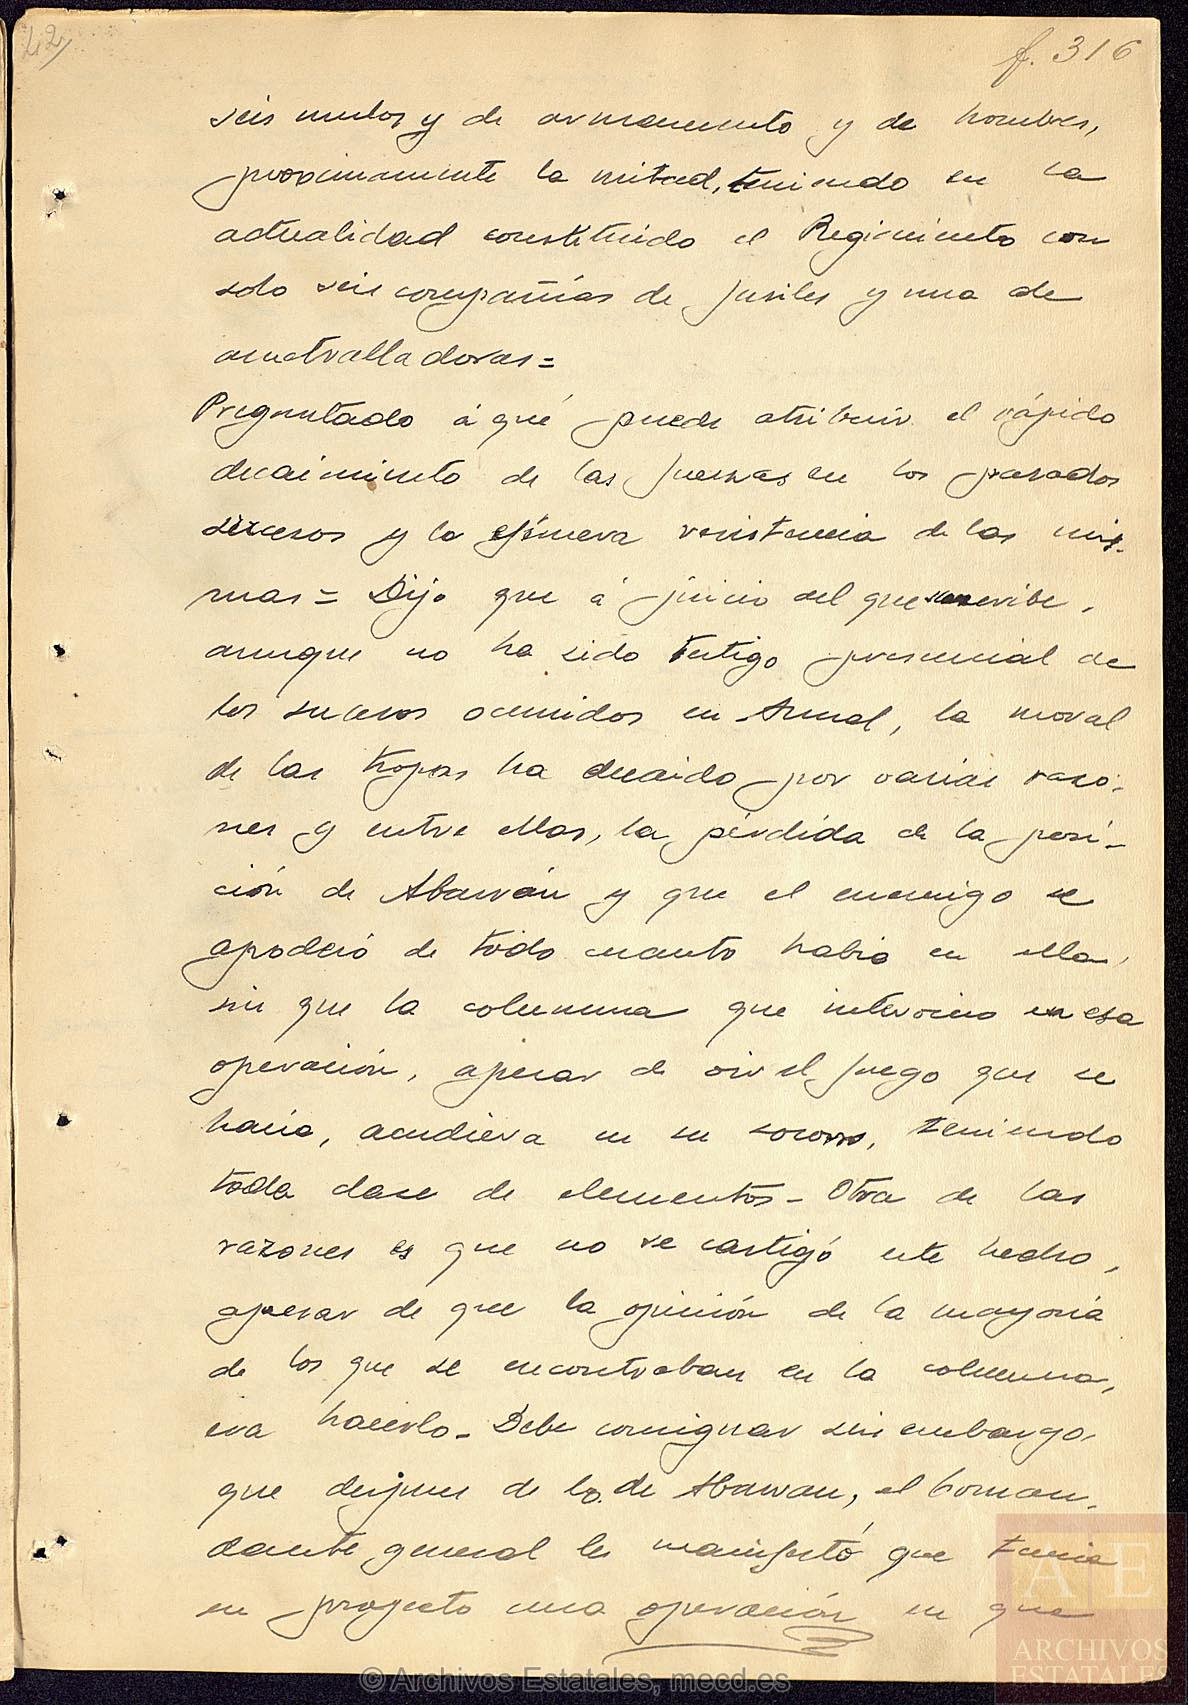 42,
f. 316
seis mulos y de armamento y de hombres,
proximamente la mitad, teniendo en la
actualidad constituido el Regimiento con
solo seis compañías de fusiles y una de
ametralladoras=
Preguntado á qué puede atribuir el rápido
decaimiento de las fuerzas en los pasados
sucesos y la efímera resistencia de las mis-
mas= Dijo que á juicio del que suscribe,
aunque no ha sido testigo presencial de
los sucesos ocurridos en Annual, la moral
de las tropas ha decaido por varias razo-
nes y entre ellas, la pérdida de la posi-
ción de Abarrán y que el enemigo se
apoderó de todo cuanto habia en ella,
sin que la columna que intervino en esa
operación, apesar de oir el fuego que se
hacia, acudiera en su socorro, teniendo
toda clase de elementos- Otra de las
razones es que no se castigó este hecho,
apesar de que la opinión de la mayoria
de los que se encontraban en la columna,
era hacerlo- Debe consignar sin embargo,
que despues de lo de Abarran, el Coman-
dante general les manifestó que tenia
en proyecto una operación en que
AE
ARCHIVOS
ESTATALES
© Archivos Estatales, mecd.es